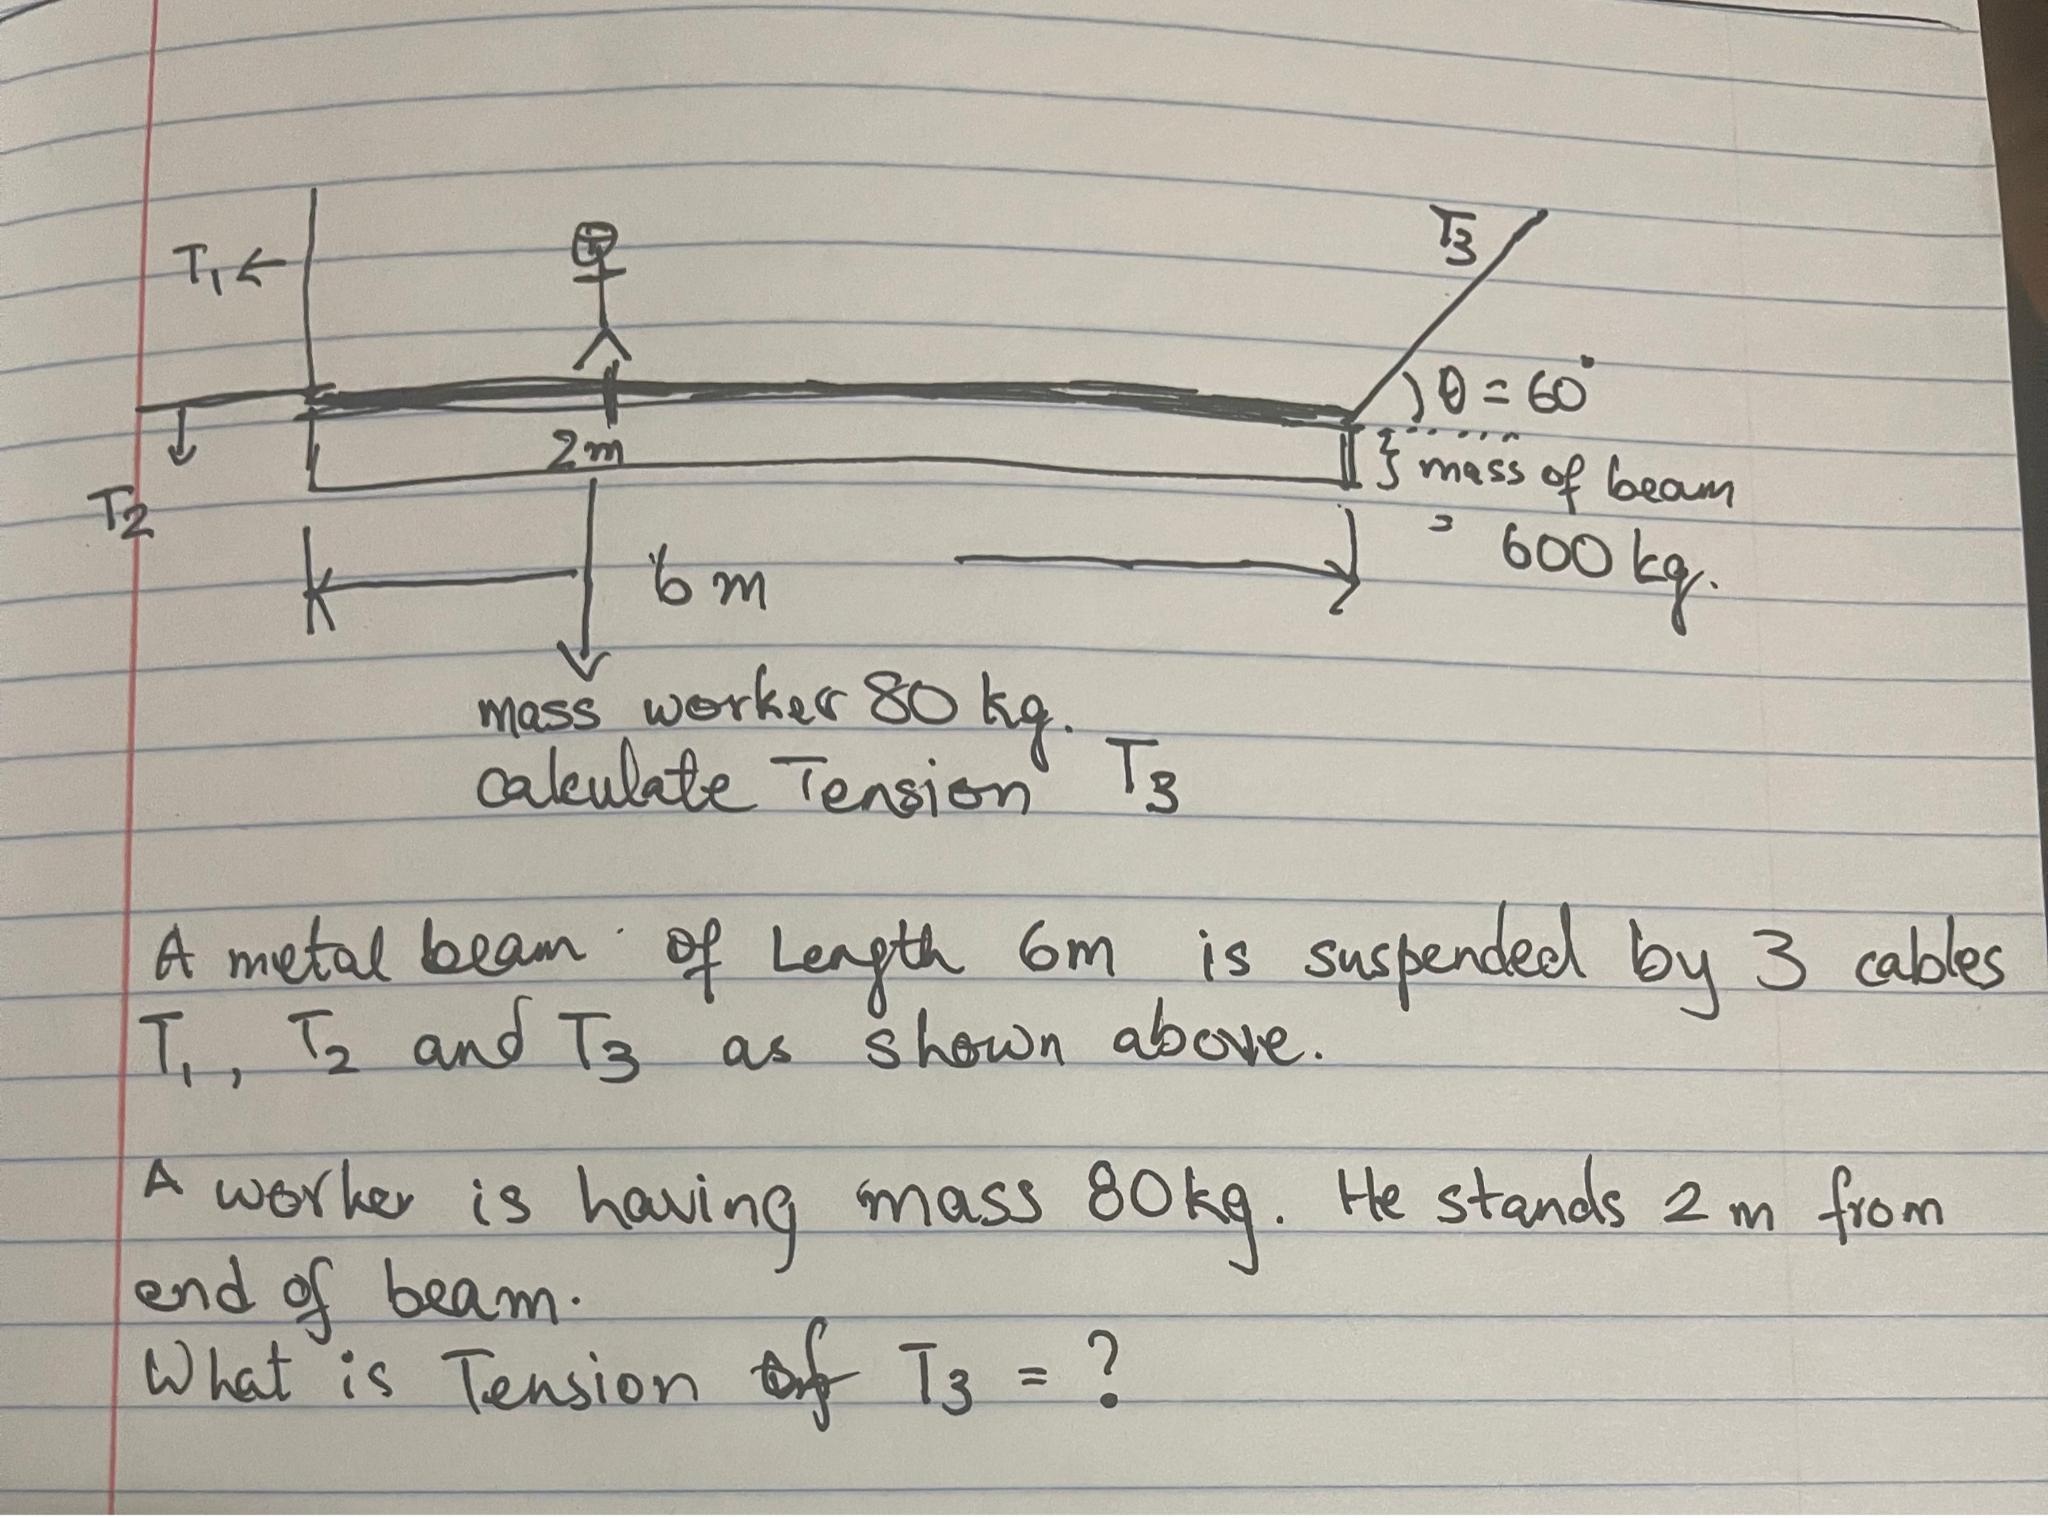 T₁ ←
T₃
θ = 60°
2m
} mass of beam
= 600 kg.
T₂
6 m
mass worker 80 kg.
calculate Tension T₃
A metal beam of Length 6m is suspended by 3 cables
T₁, T₂ and T₃ as shown above.
A worker is having mass 80kg. He stands 2 m from
end of beam.
What is Tension of T₃ = ?